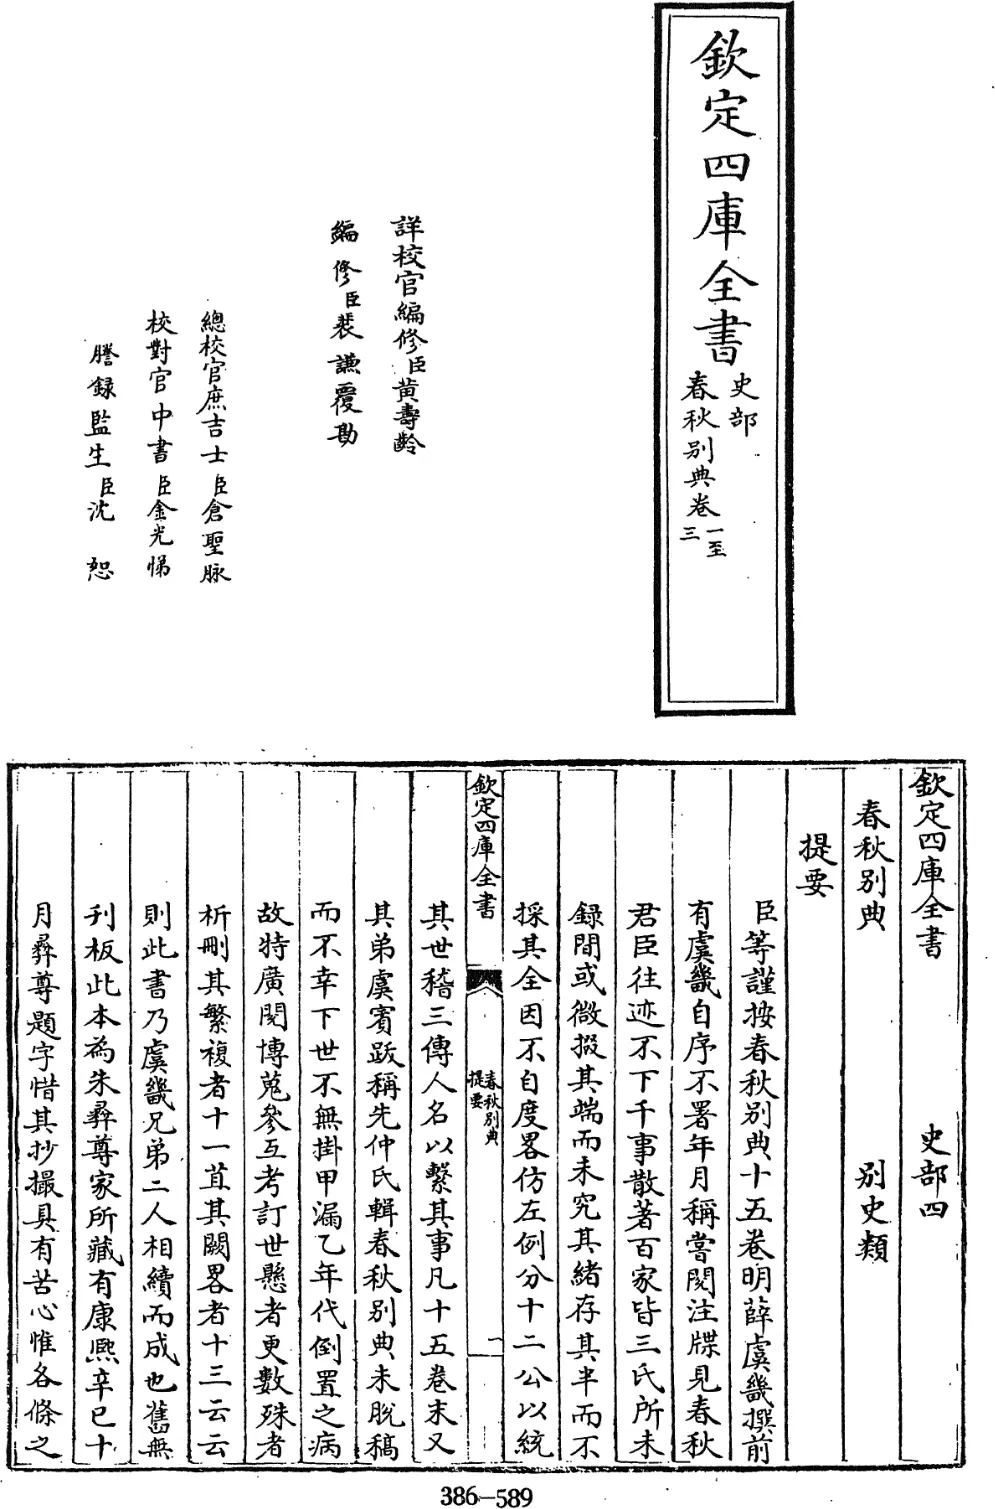 欽定四庫全書
史部
春秋別典卷一至三
詳校官編修臣黄壽齡
編修臣裴謙覆勘
總校官庶吉士臣倉聖脉
校對官中書臣金光悌
謄録監生臣沈恕
欽定四庫全書　史部四
春秋別典　別史類
提要
臣等謹按春秋別典十五卷明薛虞畿撰前
有虞畿自序不署年月稱嘗閱注牒見春秋
君臣往迹不下千事散著百家皆三氏所未
録間或微掇其端而未究其緒存其半而不
採其全因不自度畧仿左例分十二公以統
欽定四庫全書
春秋別典提要
一
其世稽三傳人名以繫其事凡十五卷末又
其弟虞賓跋稱先仲氏輯春秋別典未脫稿
而不幸下世不無掛甲漏乙年代倒置之病
故特廣閱博蒐參互考訂世懸者更數殊者
析刪其繁複者十一苴其闕畧者十三云云
則此書乃虞畿兄弟二人相續而成也舊無
刋板此本為朱彝尊家所藏有康熙辛巳十
月彝尊題字惜其抄撮具有苦心惟各條之
386-589